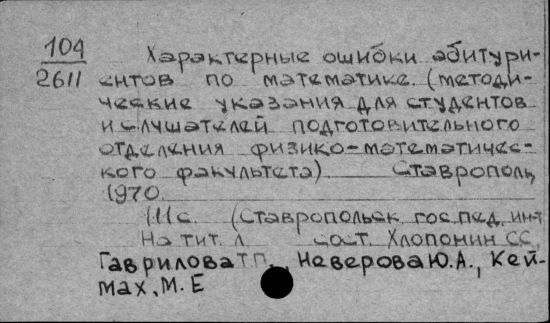 104
2611
Характерные ошибки абитури-
ентов по математике. (методи-
ческие указания для студентов
и слушателей подготовительного
отделения физико-математичес-
кого факультета) Ставрополь,
1970.
111с. (Ставропольск. гос. пед. ин-т
На тит. л. сост. Хлопонин С.С.,
Гаврилова Т.П., Неверова Ю.А., Кей-
мах, М. Е